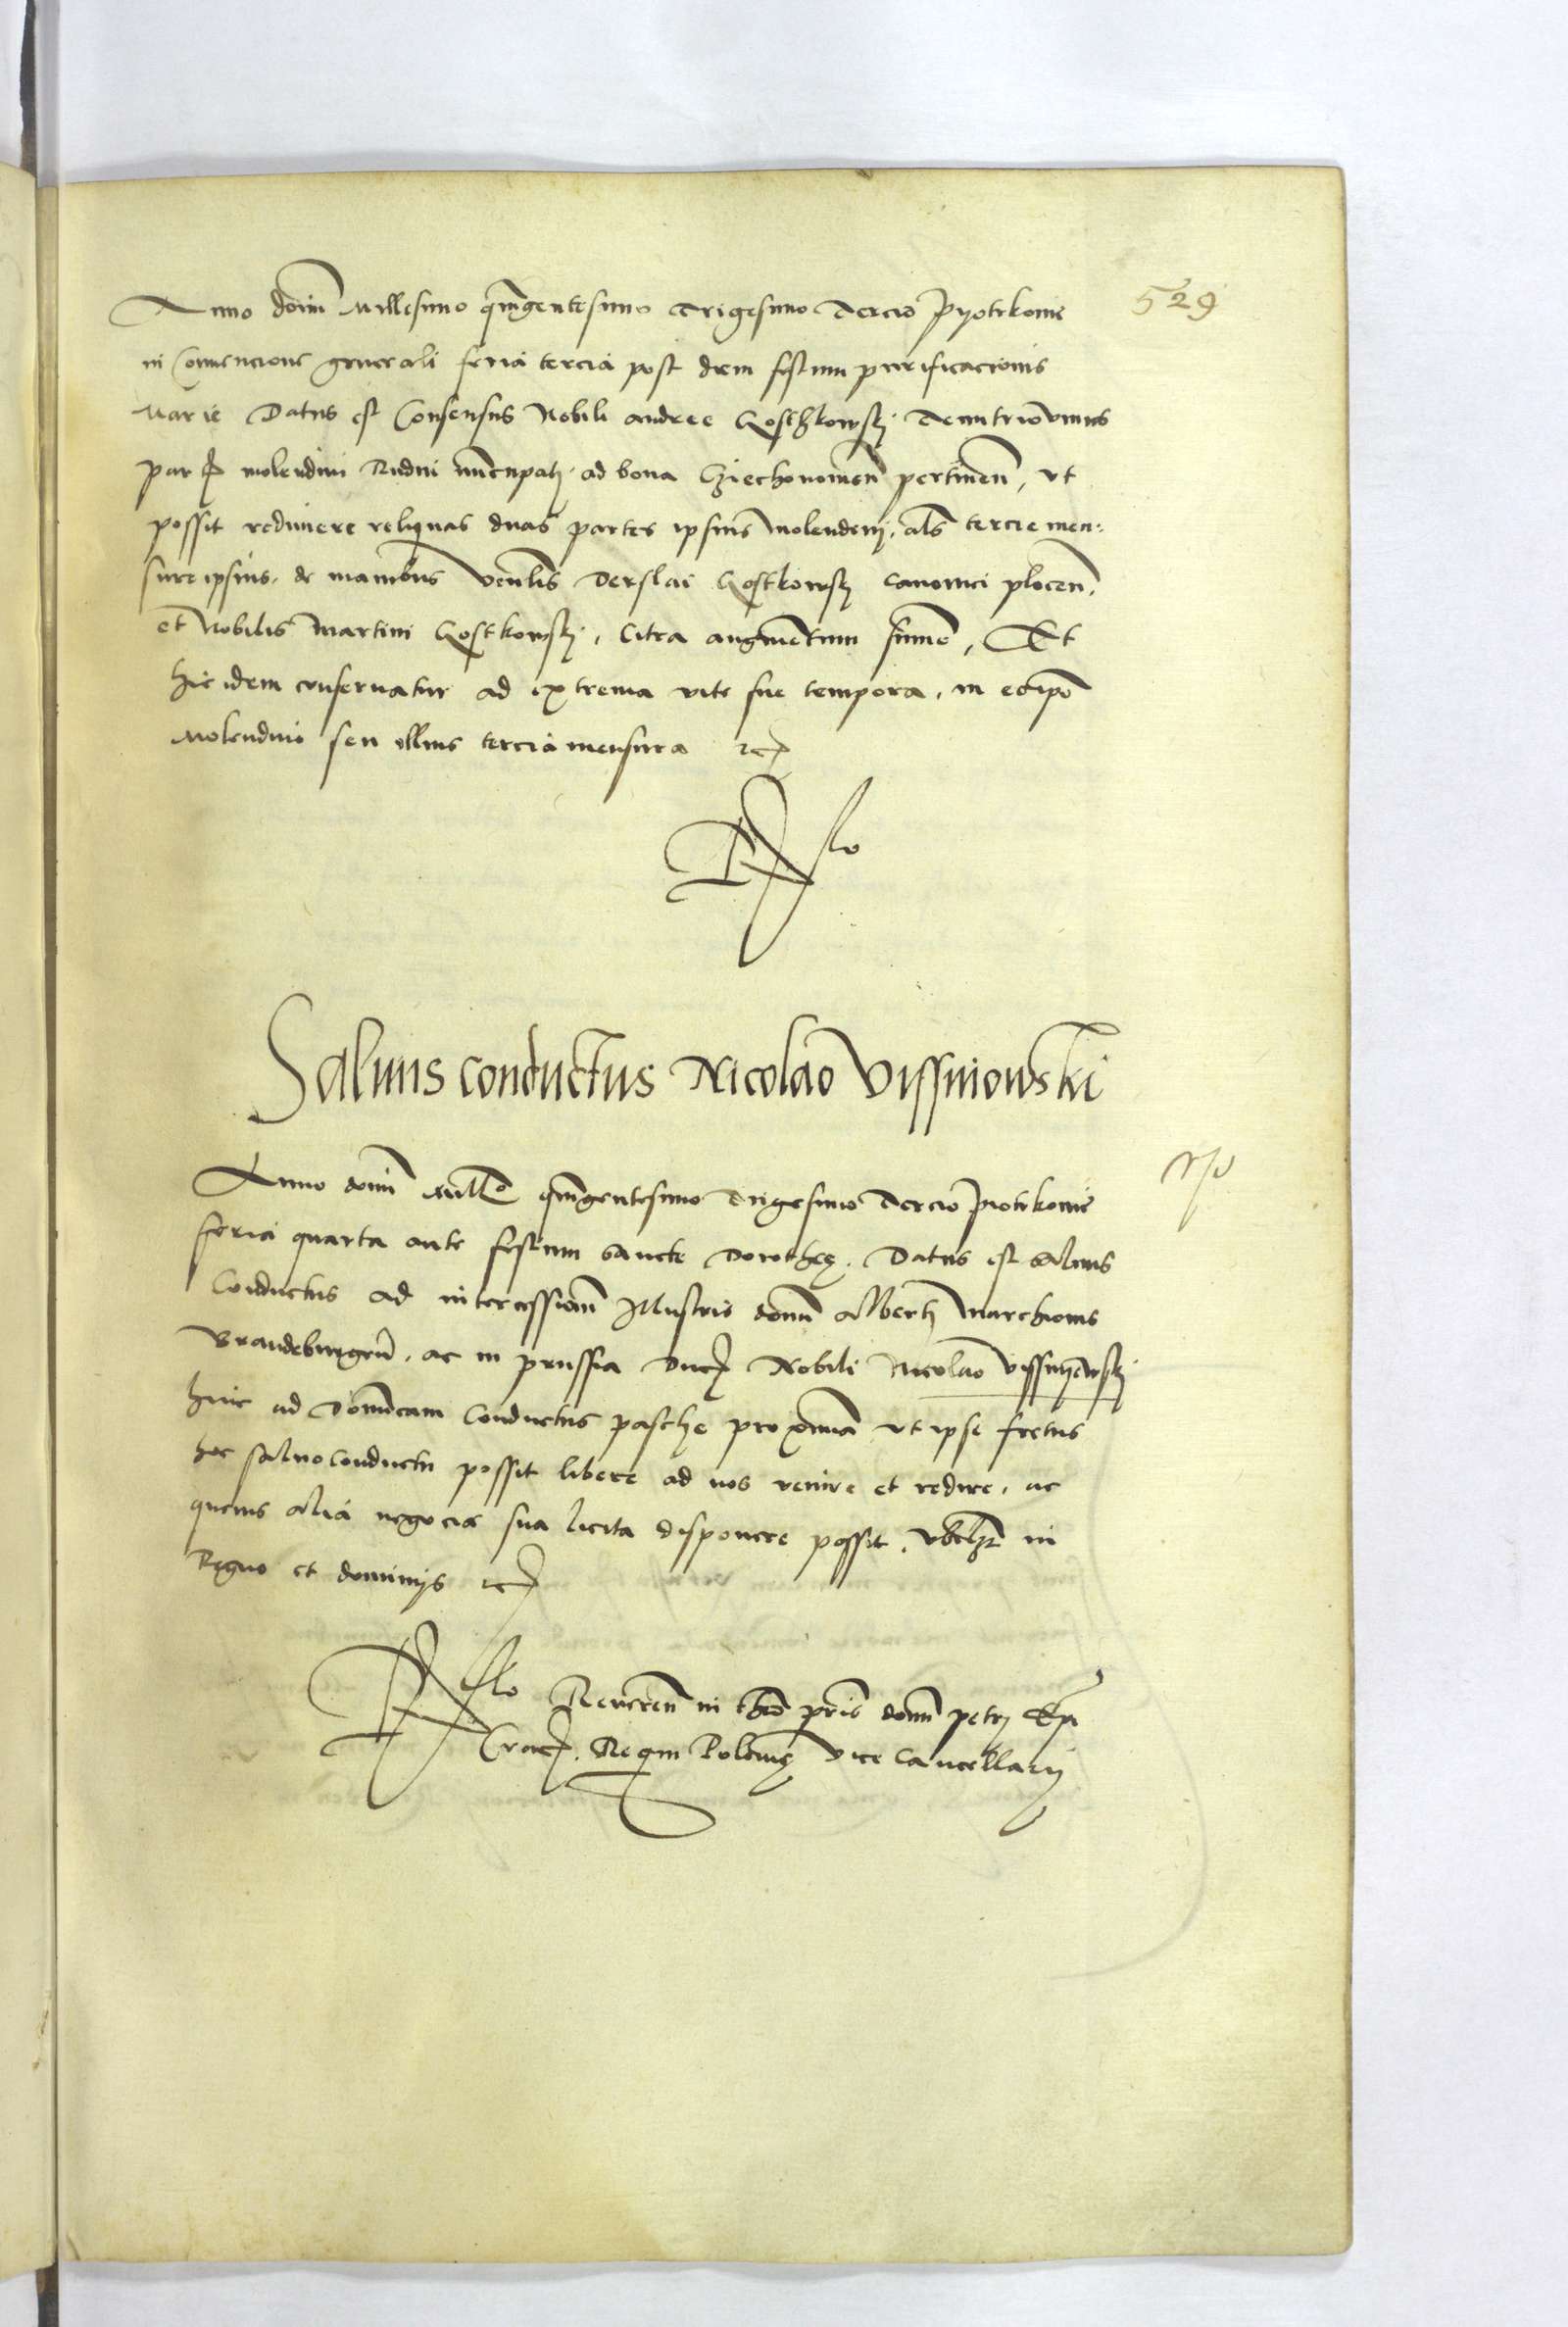 529
Anno domini Millesimo quingentesimo Trigesimo Tercio Pyotrkoviae
in Convencione generali feria tercia post diem festum purificacionis
Marie Datus est Consensus Nobili Andree Gosthkowskj
par molendini Rudni nuncupatj ad bona pertinen, ut
possit redimere reliquas duas partes ipsius molendini, als tercie men:
sure ipsius, de manibus Venlis Derslai Gostkowskj canonici plocen,
et Nobilis Martini Gostkowskj, Citra augmentum summe, Et
hic idem conservatur ad extrema vite sue tempora, in eodem
Molendino seu illius tercia mensura etc
Rlo
Salvus conductus Nicolao Vyssniowski
Anno domini Millo quingentesimo Trigesimo Tercio Piotrkoviae
feria quarta ante festum sancte Dorothee. Datus est salvus
Conductus ad intercessionem Illustris domini Alberti Marchionis
Brandeburgen, ac in prussia Ducis Nobili Nicolao Vissnyewskj
hinc ad Dominicam Conductus pasche proximam ut ipse fretus
hoc salvoconductu possit libere ad nos venire et redire, ac
quevis alia negocia sua licita disponere possit, in
Regno et dominijs etc
Rlo Reveren in chro pris domini petri Epi
Crac, Regni Polonie Vice Cancellarij